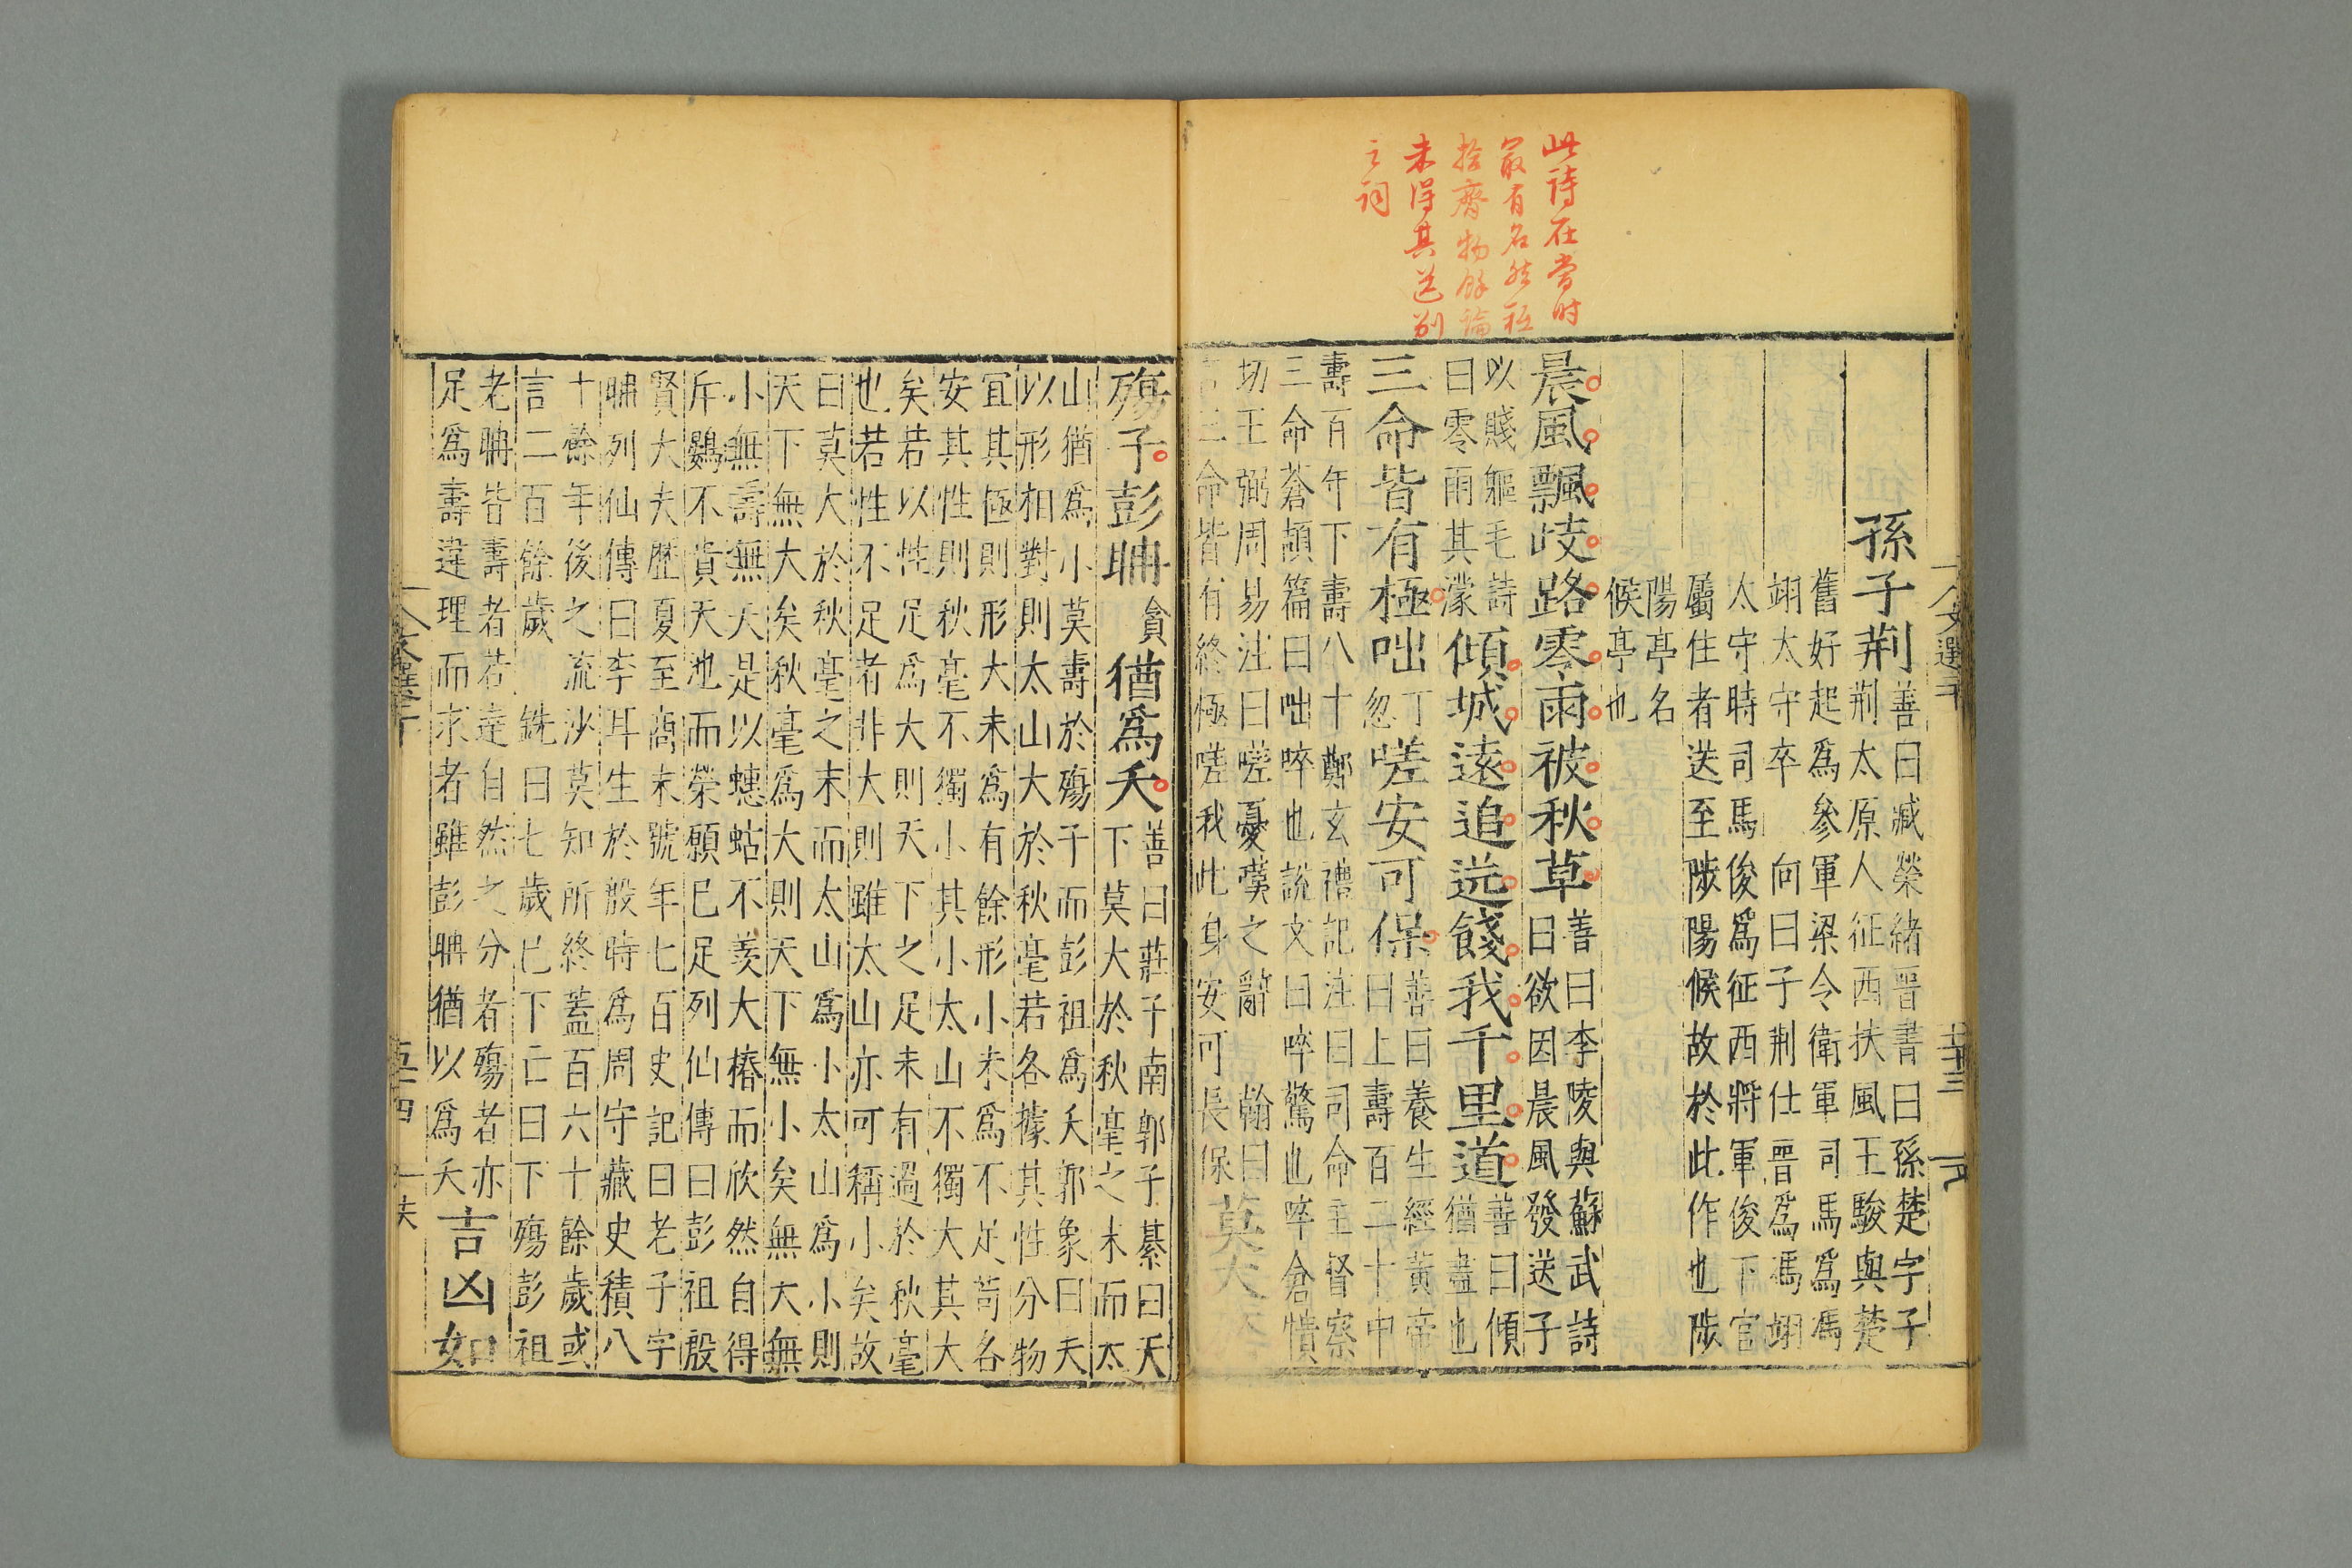 此詩在當時
最有名然秪
拾齊物餘論
未得其送別
之詞
孫子荆
善曰臧榮緒晋書曰孫楚字子
荆太原人征西扶風王駿與楚
舊好起爲參軍梁令衛軍司馬爲馮
翊太守卒 向曰子荆仕晋爲馮翊
太守時司馬俊爲征西將軍俊下官
屬住者送至陟陽候故於此作也陟
陽亭名
候亭也
晨風飄岐路零雨被秋草
善曰李陵與蘇武詩
曰欲因晨風發送子
以賤軀毛詩
曰零雨其濛
傾城遠追送餞我千里道
善曰傾
猶盡也
三命皆有極咄
丁
忽
嗟安可保
善曰養生經黄帝
曰上壽百二十中
壽百年下壽八十鄭玄禮記注曰司命主督察
三命蒼頡篇曰咄啐也說文曰啐驚也啐倉憒
切王弼周易注曰嗟憂歎之辭 翰曰
言三命皆有終極嗟我此身安可長保
莫大於
殤子彭聃
貪
猶爲夭
善曰莊子南郭子綦曰天
下莫大於秋毫之末而太
山猶爲小莫壽於殤子而彭祖爲夭郭象曰夫
以形相對則太山大於秋毫若各據其性分物
宜其極則形大未爲有餘形小未爲不足苟各
安其性則秋毫不獨小其小太山不獨大其大
矣若以性足爲大則天下之足未有過於秋毫
也若性不足者非大則雖太山亦可稱小矣故
曰莫大於秋毫之末而太山爲小太山爲小則
天下無大矣秋毫爲大則天下無小矣無大無
小無壽無夭是以蟪蛄不羨大椿而欣然自得
斥鷃不貴天池而榮願已足列仙傳曰彭祖殷
賢大夫歷夏至商末號年七百史記曰老子字
聃列仙傳曰李耳生於殷時爲周守藏史積八
十餘年後之流沙莫知所終蓋百六十餘歲或
言二百餘歲 銑曰七歲已下亡曰下殤彭祖
老聃皆壽者若達自然之分者殤者亦
足爲壽違理而求者雖彭聃猶以爲夭
吉凶如